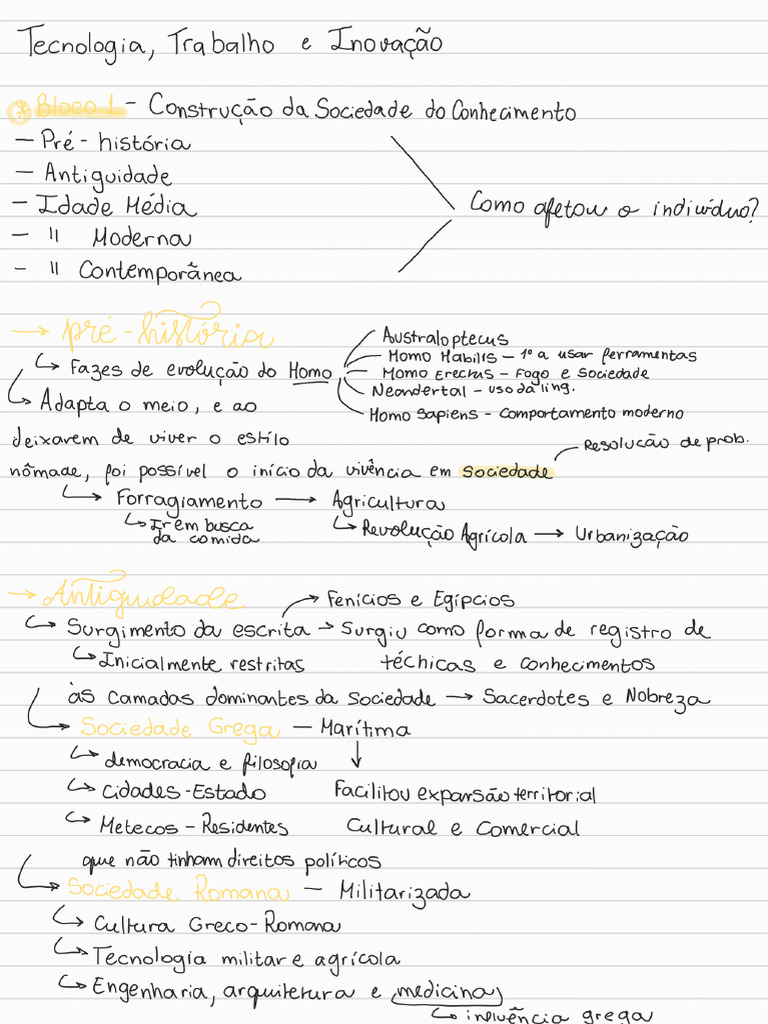 Tecnologia, Trabalho e Inovação
* Bloco 1 - Construção da Sociedade do Conhecimento
- Pré-história
- Antiguidade
- Idade Média
- " Moderna
- " Contemporânea
Como afetou o indivíduo?
→ pré-história
↳ Fazes de evolução do Homo
Australoptecus
Homo Habilis - 1º a usar ferramentas
Homo Erectus - Fogo e Sociedade
Neandertal - uso da ling.
Homo Sapiens - comportamento moderno
↳ Adapta o meio, e ao
deixarem de viver o estilo
nômade, foi possível o início da vivência em sociedade
Resolução de prob.
↳ Forragiamento → Agricultura
↳ Ir em busca
da comida
↳ Revolução Agrícola → Urbanização
→ Antiguidade
→ Fenícios e Egípcios
↳ Surgimento da escrita → Surgiu como forma de registro de
técnicas e conhecimentos
↳ Inicialmente restritas
às camadas dominantes da sociedade → Sacerdotes e Nobreza
↳ Sociedade Grega - Marítima
↓
Facilitou expansão territorial
Cultural e Comercial
↳ democracia e filosofia
↳ Cidades-Estado
↳ Metecos - Residentes
que não tinham direitos políticos
↳ Sociedade Romana - Militarizada
↳ Cultura Greco-Romana
↳ Tecnologia militar e agrícola
↳ Engenharia, arquitetura e medicina
↳ influência grega